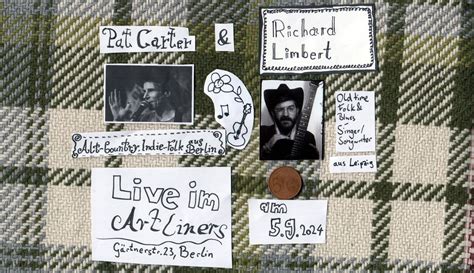 Pat Carter &
Richard
Limbert
Old time
Folk &
Blues
Singer/
Songwriter
aus Leipzig
Alt-Country, Indie-Folk aus
Berlin
Live im
Art Liners
Gärtnerstr. 23, Berlin
am
5.9.2024